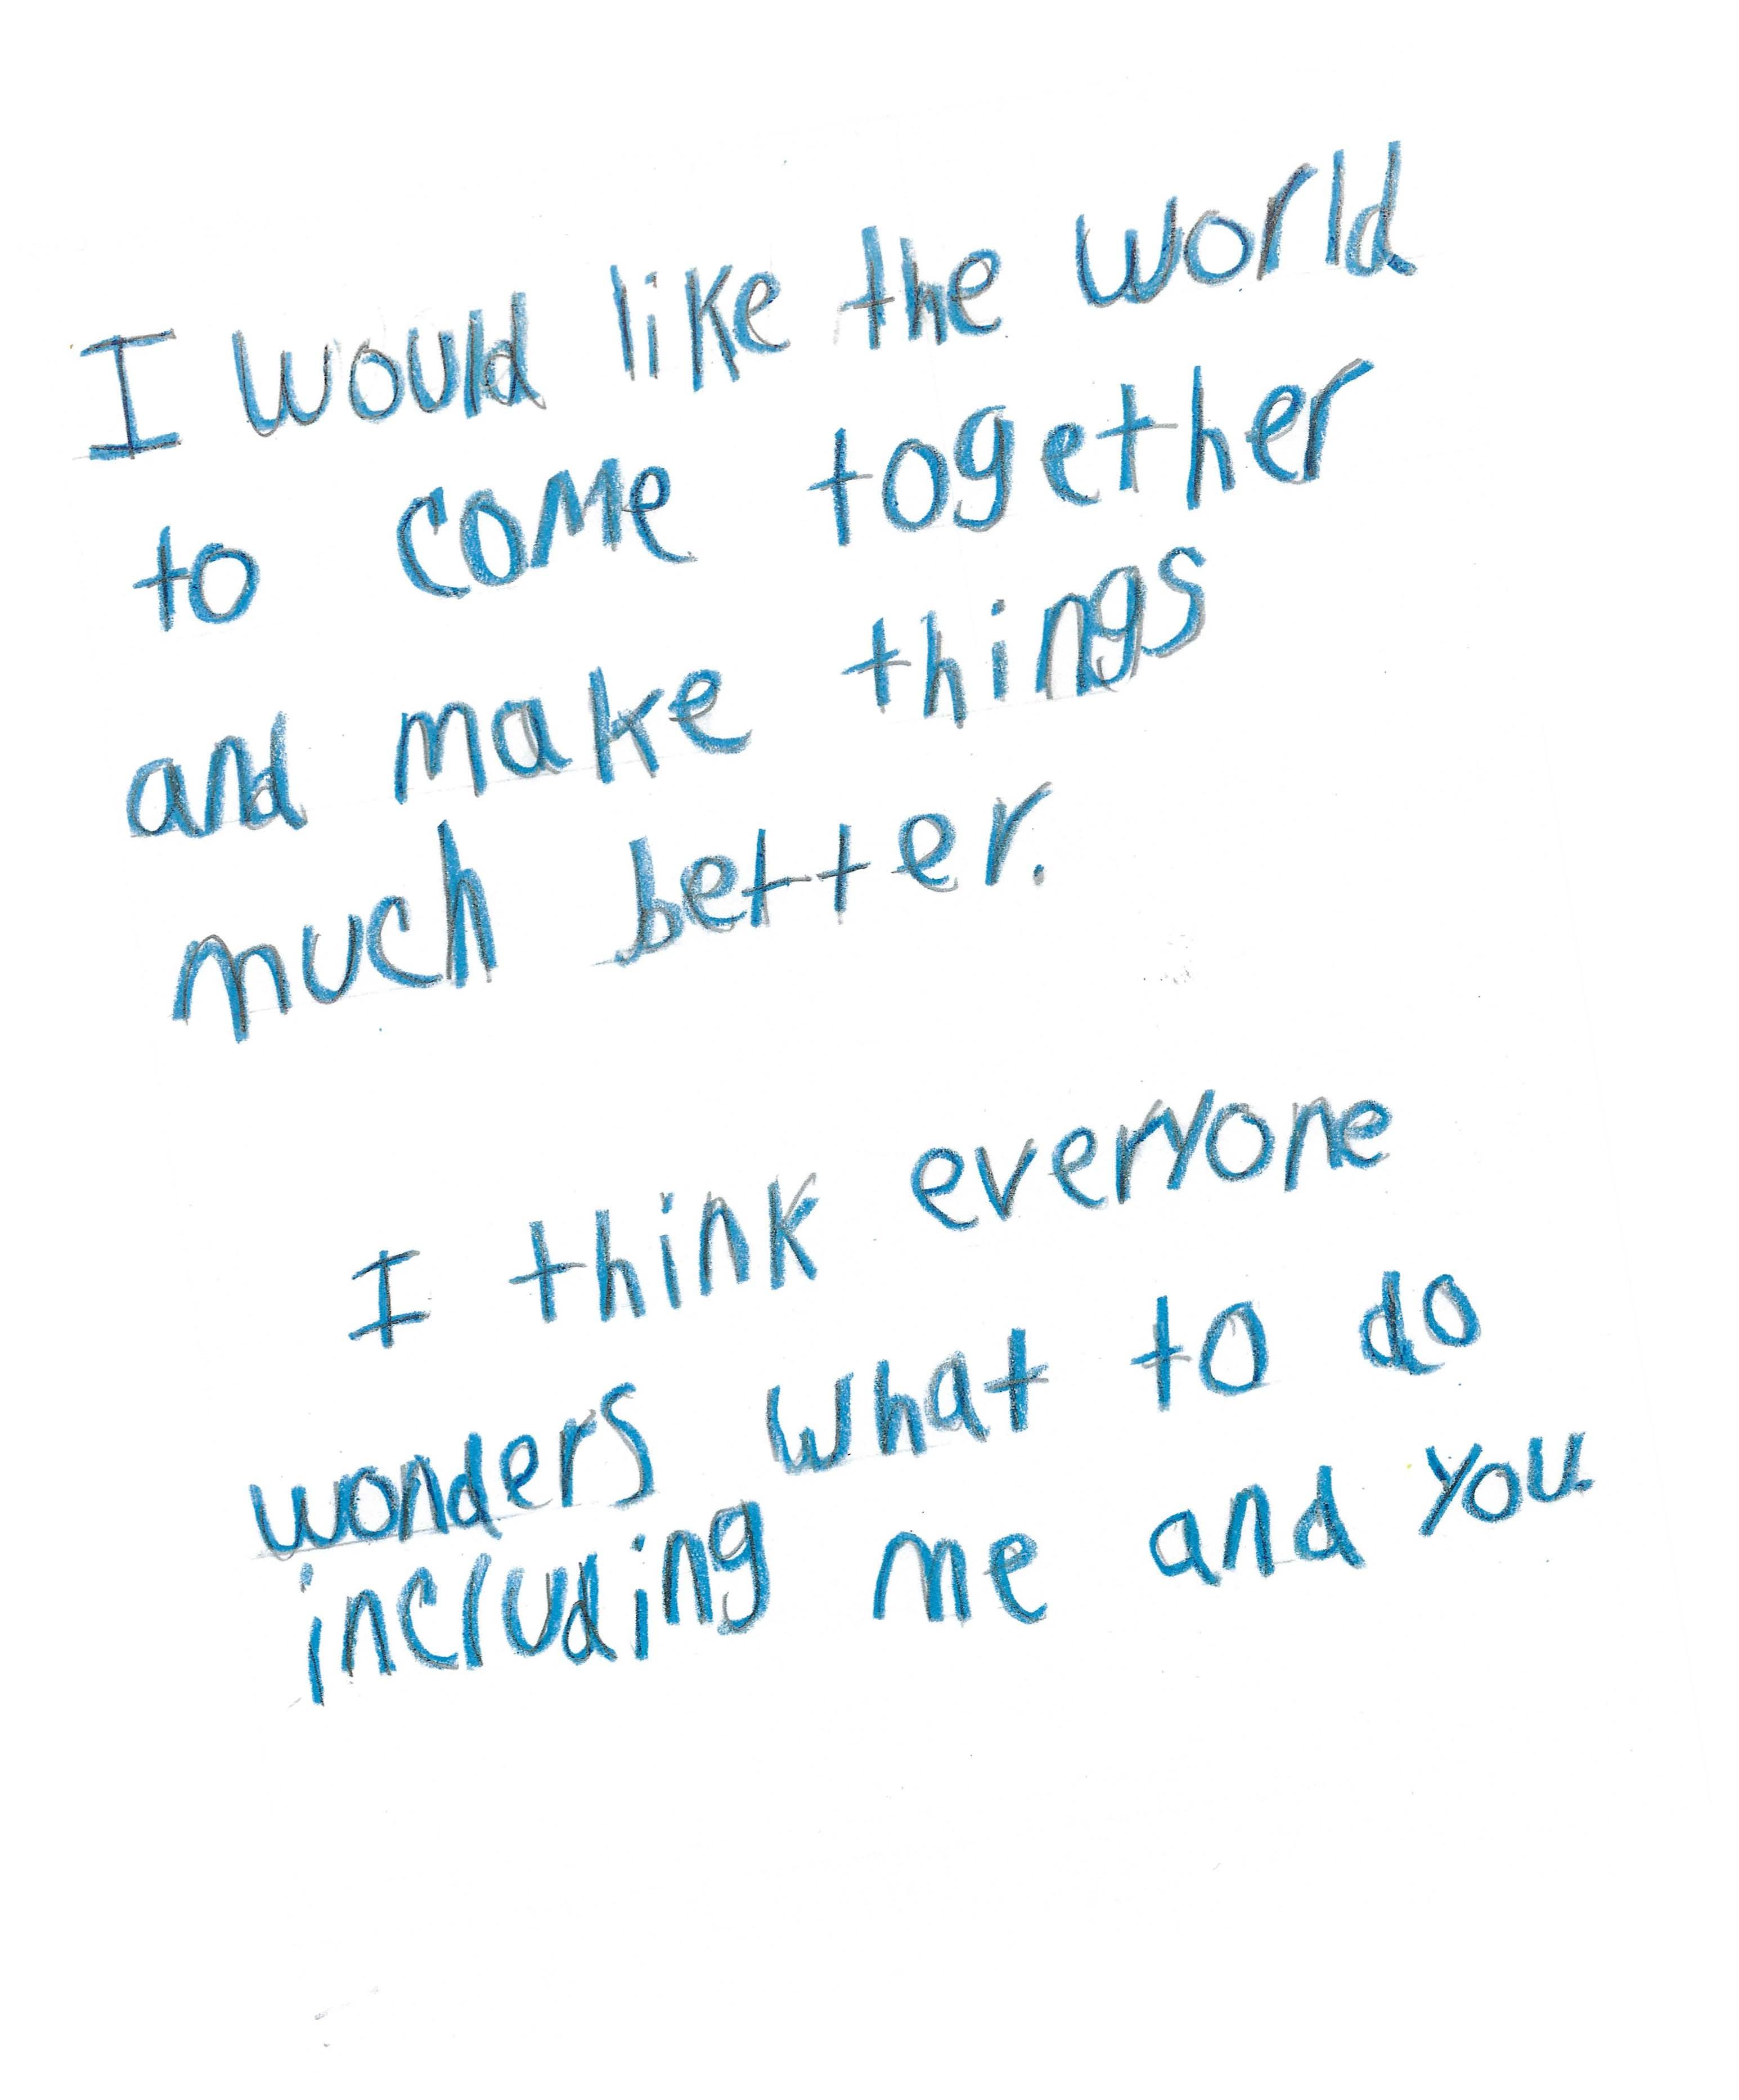 I would like the world
to come together
and make things
much better.
I think everyone
wonders what to do
including me and you.